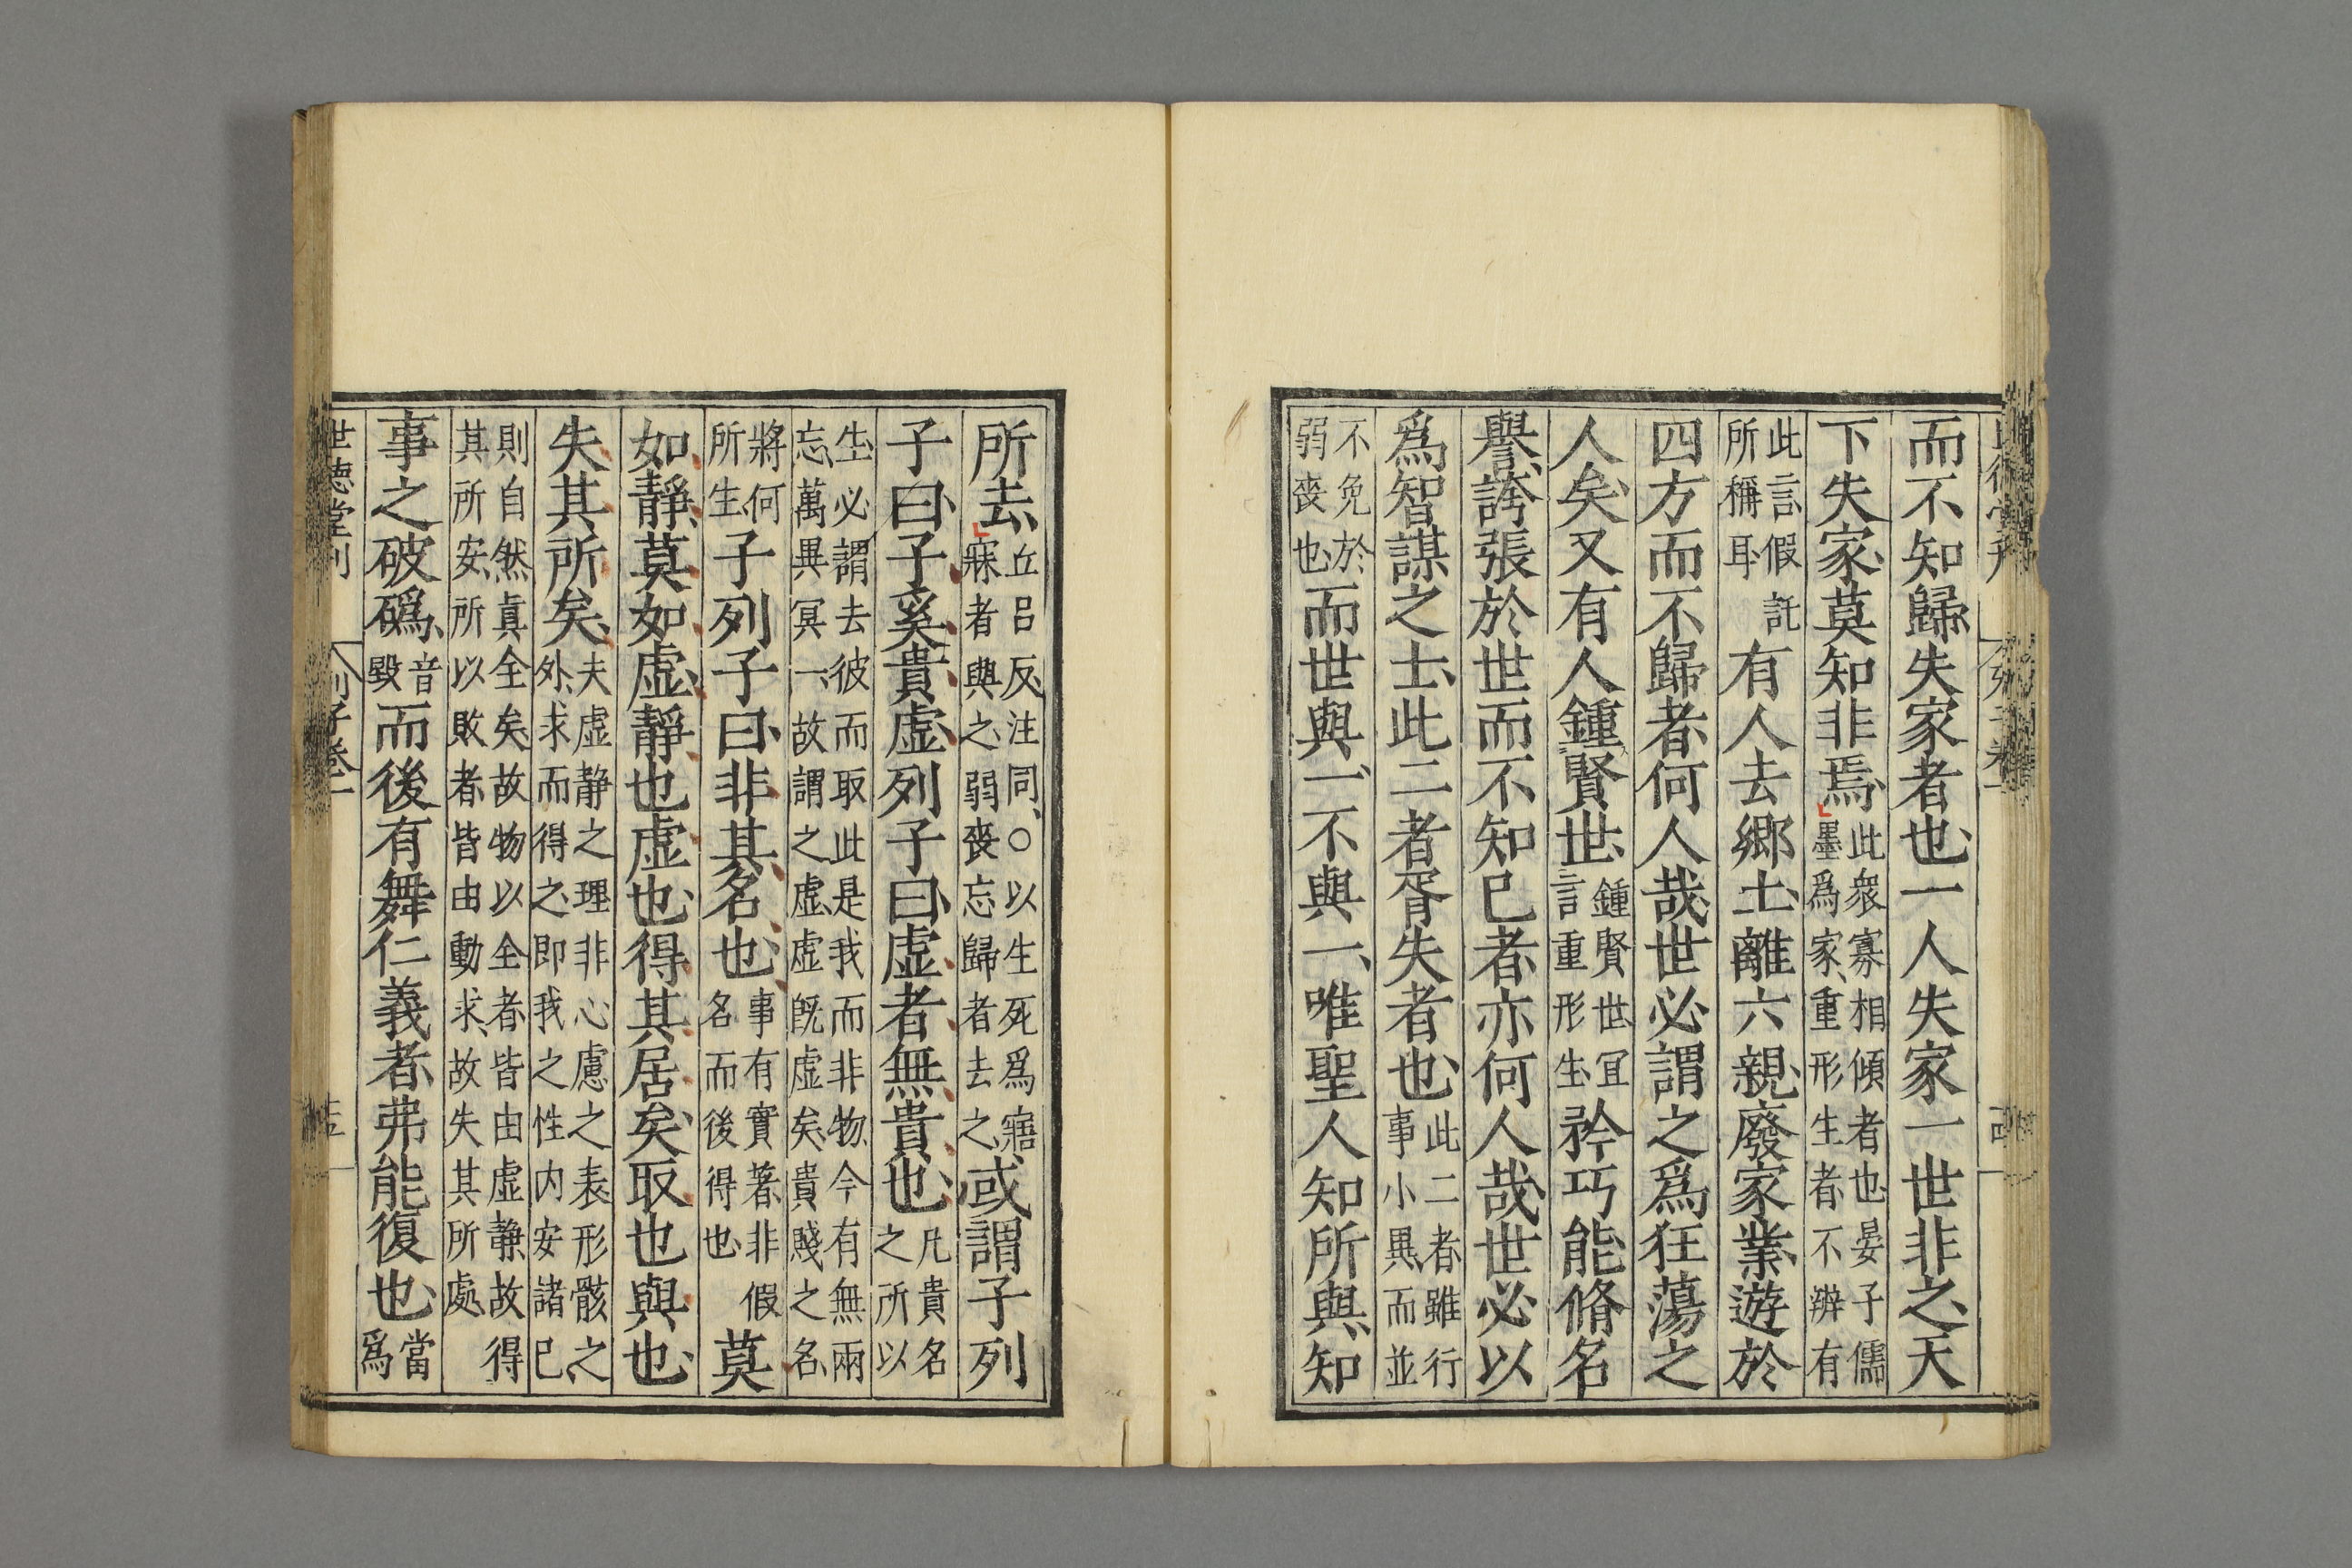 而不知歸失家者也一人失家一世非之天
下失家莫知非焉此衆寡相傾者也晏子儒墨爲家重形生者不辨有
此言假託所稱耳有人去郷土離六親廢家業遊於
四方而不歸者何人哉世必謂之爲狂蕩之
人矣又有人鍾賢世鍾賢世冝言重形生矜巧能脩名
譽誇張於世而不知已者亦何人哉世必以
爲智謀之士此二者胥失者也此二者雖行事小異而並
不免於弱喪也而世與一不與一唯聖人知所與知
所去丘呂反注同○以生死爲寤寐者與之弱喪忘歸者去之或謂子列
子曰子奚貴虚列子曰虚者無貴也凡貴名之所以
生必謂去彼而取此是我而非物今有無兩忘萬異冥一故謂之虚虚旣虚矣貴賤之名
將何所生子列子曰非其名也事有實著非假名而後得也莫
如靜莫如虚靜也虚也得其居矣取也與也
失其所矣夫虚静之理非心慮之表形骸之外求而得之即我之性内安諸已
則自然眞全矣故物以全者皆由虚静故得其所安所以敗者皆由動求故失其所處
事之破䃣音毀而後有舞仁義者弗能復也當爲
世德堂刊 列子卷一